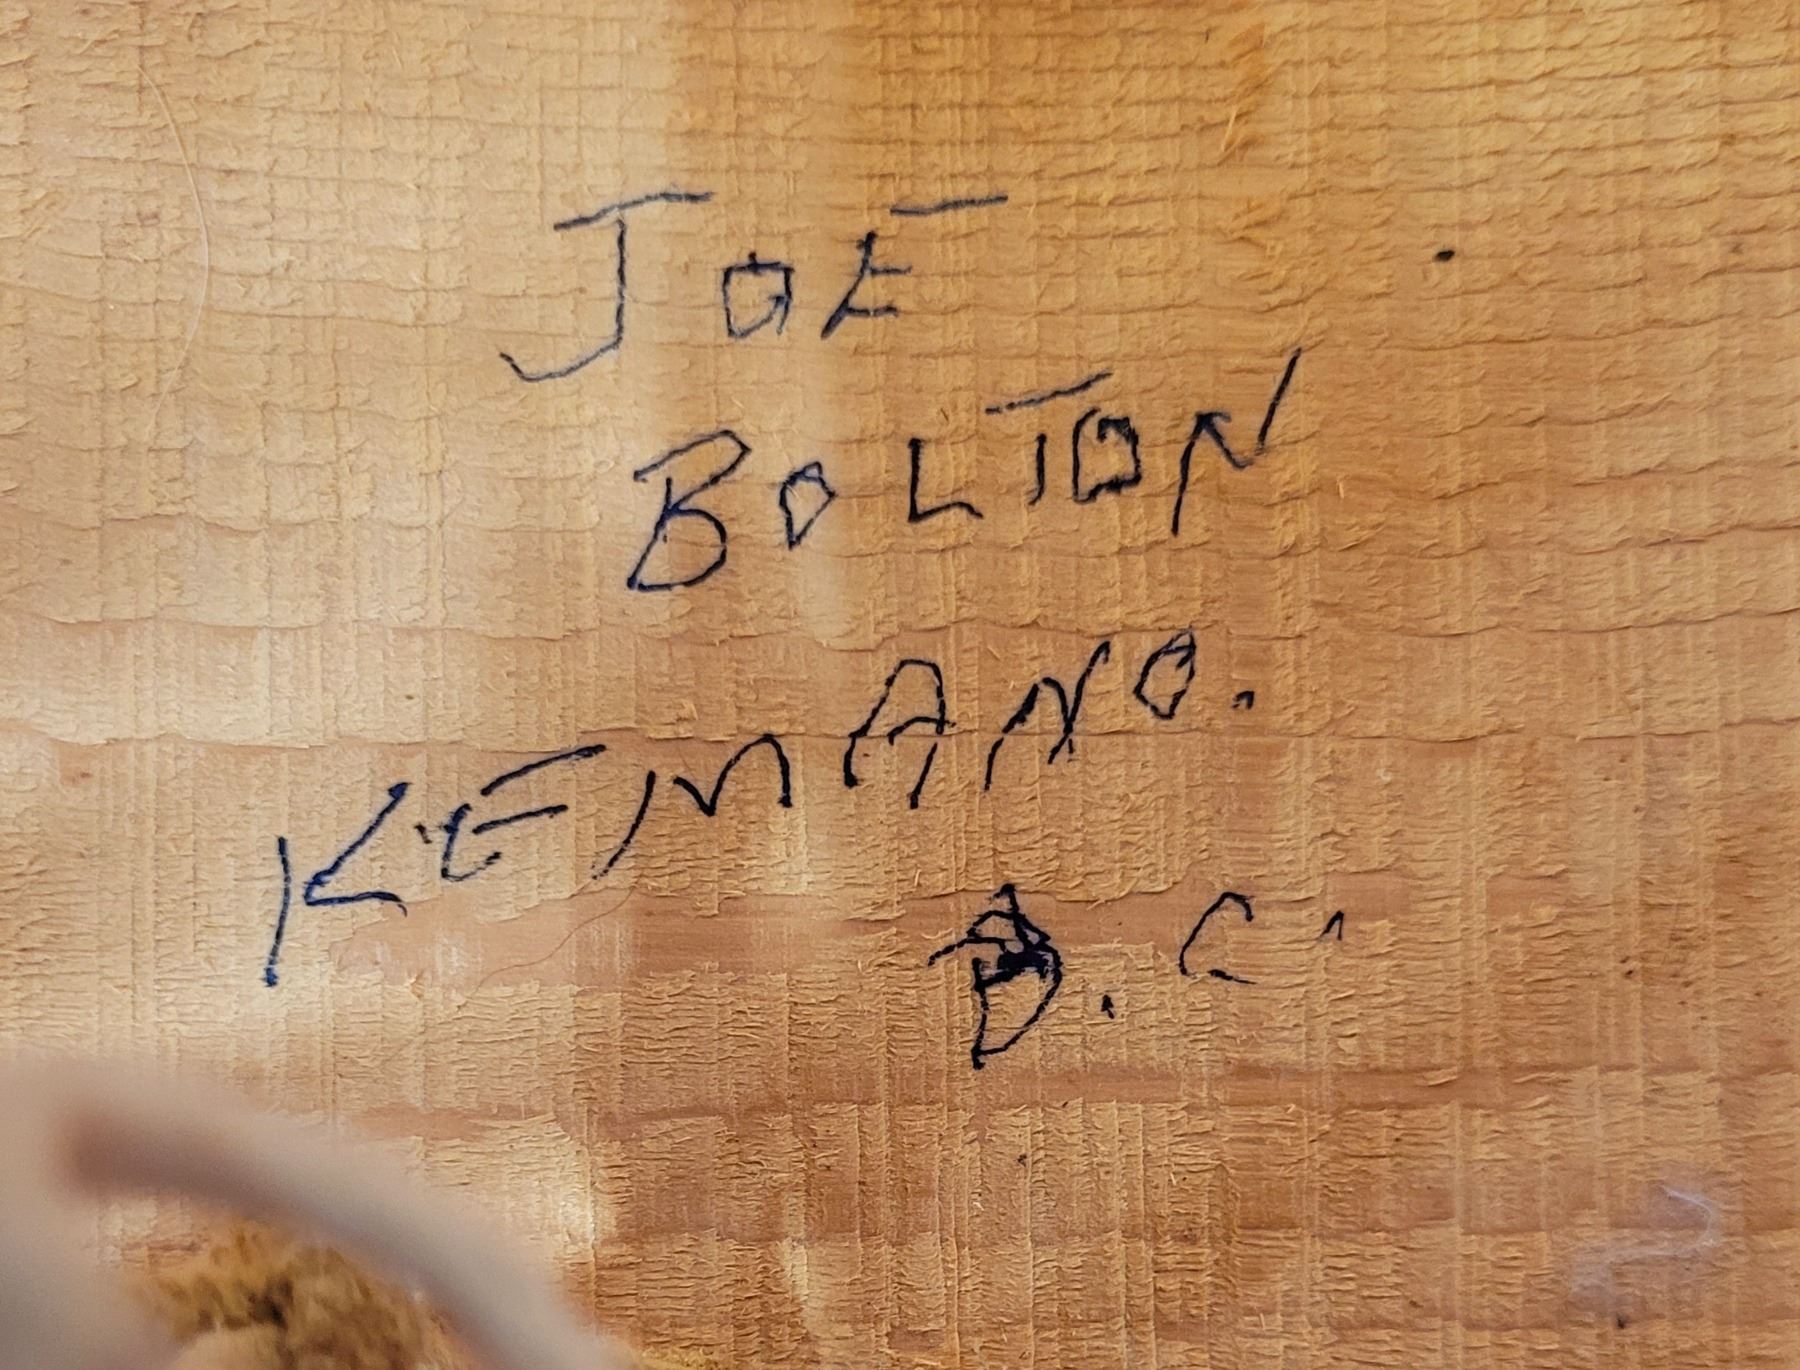 JOE
BOLTON
KEMANO.
B.C.